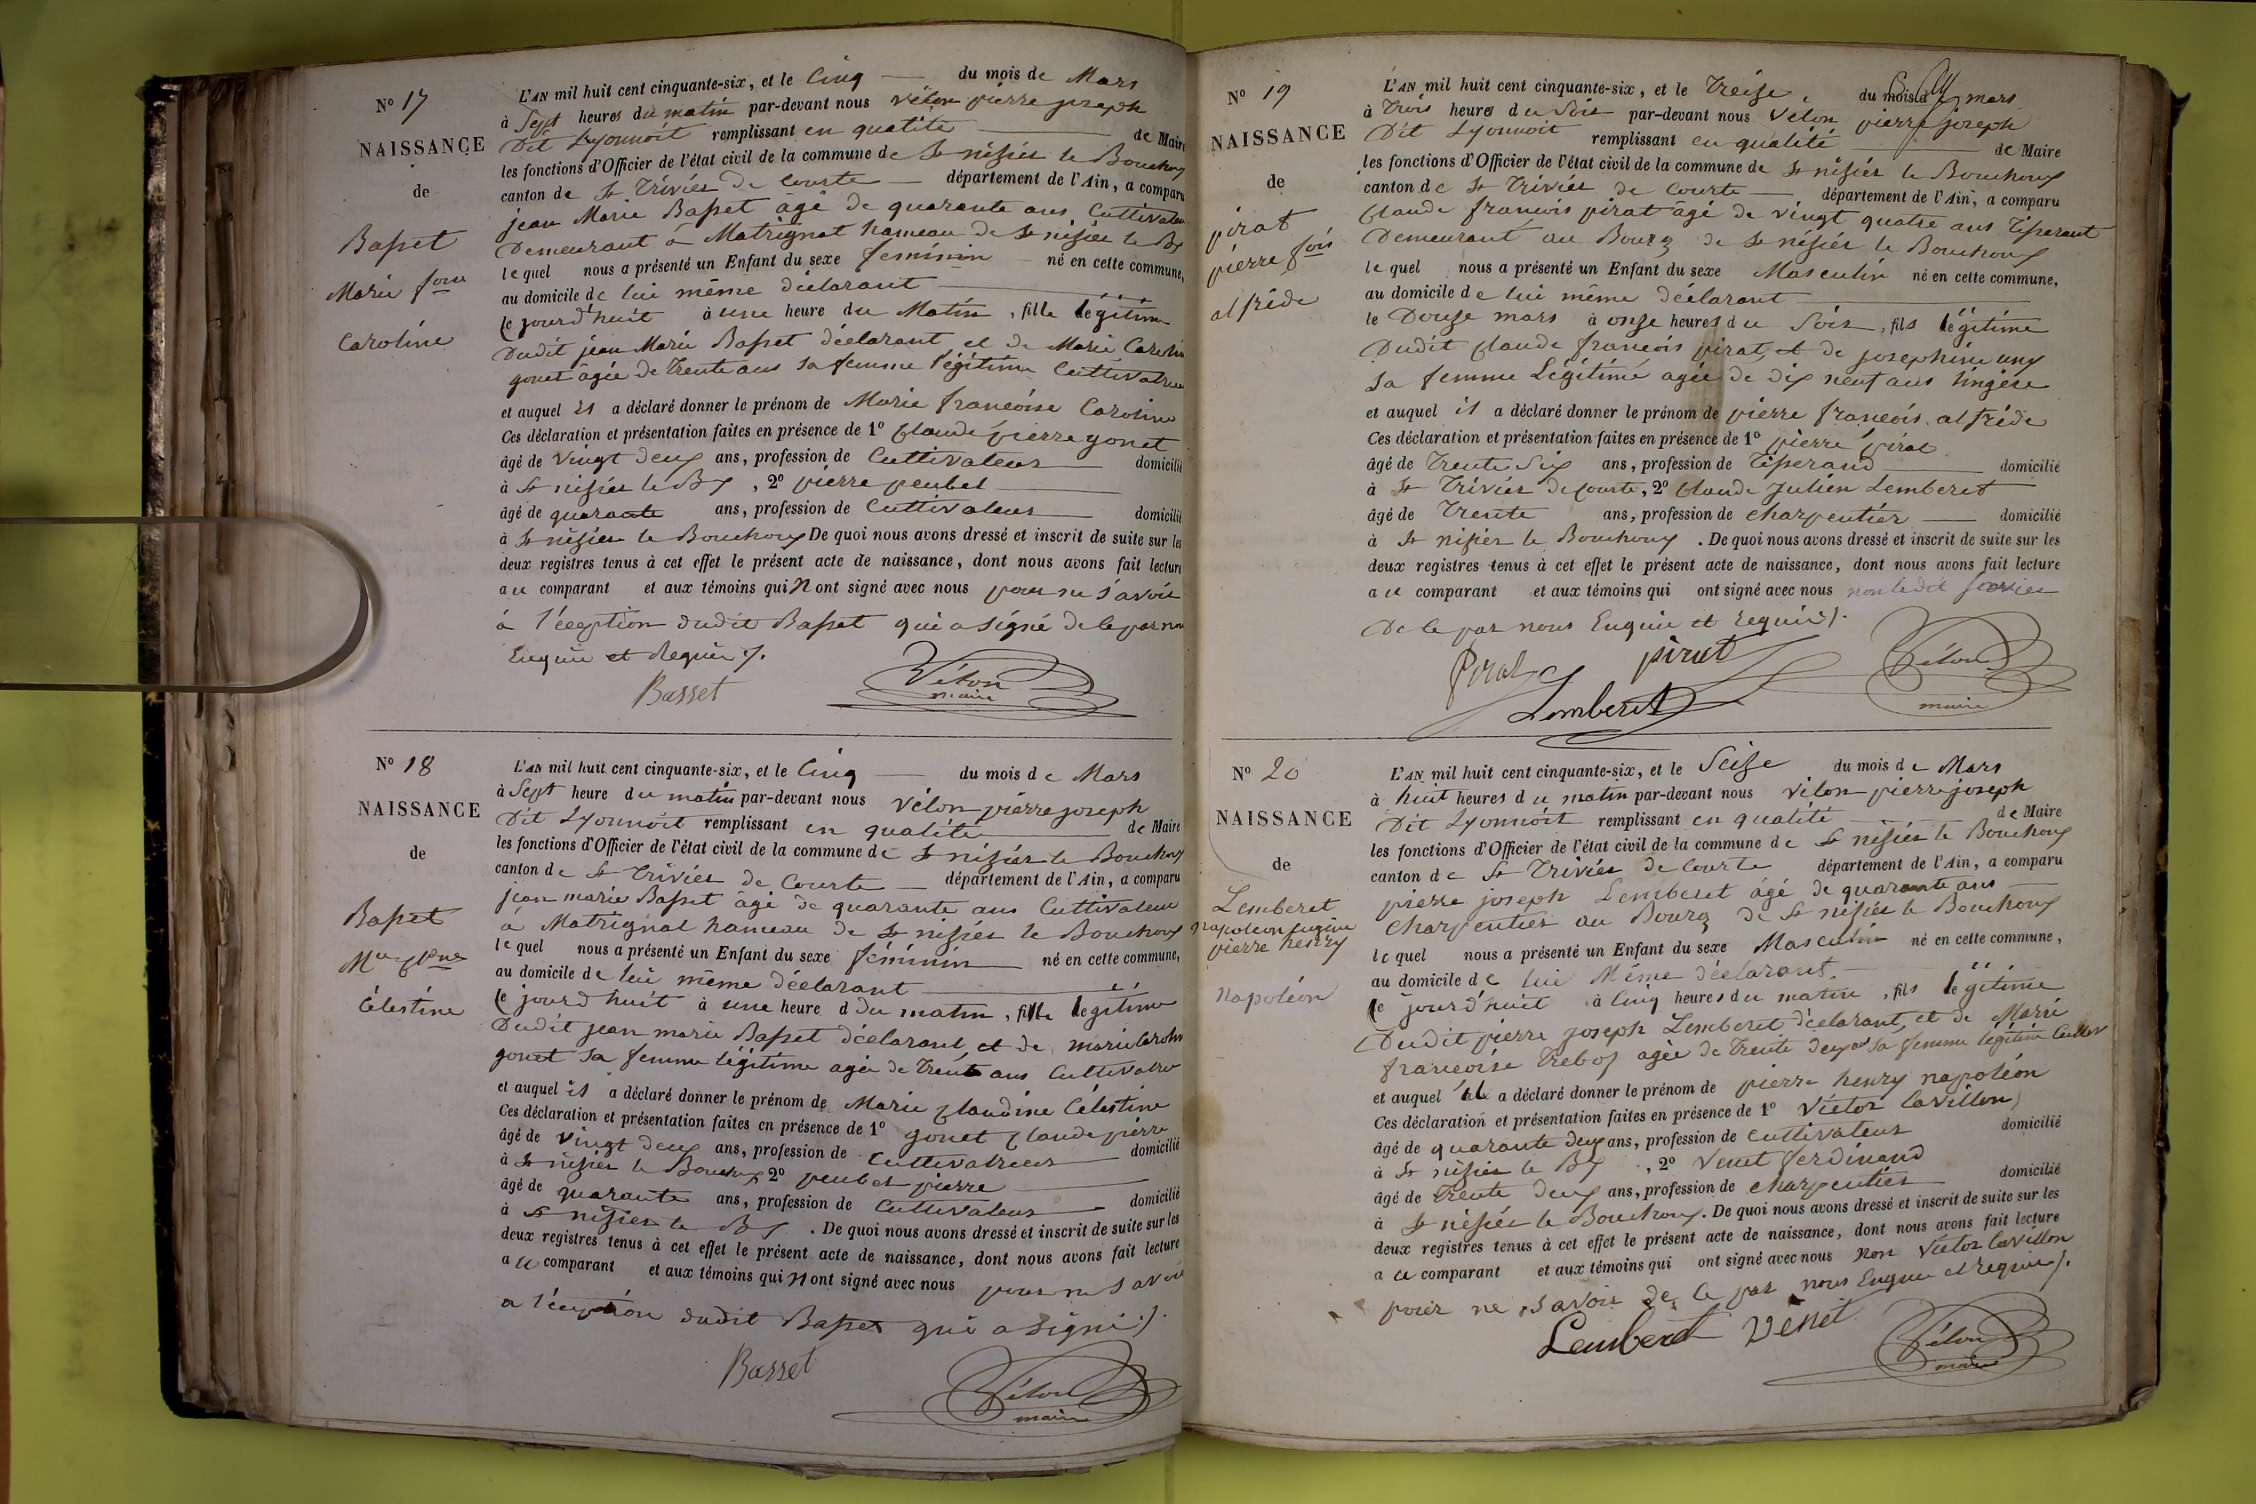 Nº 17
NAISSANCE
de
Basset
Marie fçoise
Caroline
L'AN mil huit cent cinquante-six, et le Cinq du mois de Mars
à Sept heures du matin par-devant nous Vélon pierre joseph
Dit Lyonnoit remplissant en qualité de Maire
les fonctions d'Officier de l'état civil de la commune de St nisier le Bouchoux
canton de St Trivier de Courte département de l'Ain, a comparu
jean Marie Basset âgé de quarante ans Cultivateur
Demeurant à Matrignat hameau de St nisier le Bx
lequel nous a présenté un Enfant du sexe féminin né en cette commune,
au domicile de lui même déclarant
Ce jourd'huit à une heure du Matin, fille légitime
Dudit jean Marie Basset déclarant et de Marie Caroline
gonet âgée de Trente ans sa femme légitime Cultivatrice
et auquel il a déclaré donner le prénom de Marie françoise Caroline
Ces déclaration et présentation faites en présence de 1º Claude pierre gonet
âgé de vingt deux ans, profession de Cultivateur domicilié
à St nisier le Bx, 2º pierre peubet
âgé de quarante ans, profession de Cultivateur domicilié
à St nisier le Bouchoux De quoi nous avons dressé et inscrit de suite sur les
deux registres tenus à cet effet le présent acte de naissance, dont nous avons fait lecture
au comparant et aux témoins qui n ont signé avec nous pour ne savoir
à l'éception dudit Basset qui a signé de le par nous
Enquie et Requis /.
Basset
Vélon
maire
Nº 18
NAISSANCE
de
Basset
Mie Cdine
Célestine
L'AN mil huit cent cinquante-six, et le Cinq du mois de Mars
à Sept heure du matin par-devant nous vélon pierre joseph
Dit Lyonnoit remplissant en qualité de Maire
les fonctions d'Officier de l'état civil de la commune de St nisier le Bouchoux
canton de St Trivier de Courte département de l'Ain, a comparu
jean marie Basset âgé de quarante ans Cultivateur
à Matrignat hameau de St nisier le Bouchoux
lequel nous a présenté un Enfant du sexe féminin né en cette commune,
au domicile de lui même déclarant
Ce jourd'huit à une heure d Du matin, fille légitime
Dudit jean marie Basset déclarant et de marie Caroline
gonet sa femme légitime agée de Trente ans Cultivatrice
et auquel il a déclaré donner le prénom de Marie Claudine Célestine
Ces déclaration et présentation faites en présence de 1º gonet Claude pierre
âgé de vingt deux ans, profession de Cultivatrieur domicilié
à St nisier le Bouchoux 2º peubet pierre
âgé de quarante ans, profession de Cultivateur domicilié
à St nisier le Bx. De quoi nous avons dressé et inscrit de suite sur les
deux registres tenus à cet effet le présent acte de naissance, dont nous avons fait lecture
au comparant et aux témoins qui n ont signé avec nous pour ne savoir
a l'éception dudit Basset qui a signé /.
Basset
Vélon
maire
Nº 19
NAISSANCE
de
pirat
pierre fçois
alfréde
L'AN mil huit cent cinquante-six, et le Treize du mois de mars
à Trois heures du Soir par-devant nous Vélon pierre joseph
Dit Lyonnoit remplissant en qualité de Maire
les fonctions d'Officier de l'état civil de la commune de St nisier le Bouchoux
canton de St Trivier de Courte département de l'Ain, a comparu
Claude françois pirat âgé de vingt quatre ans Tisserant
Demeurant au Bourg de St nisier le Bouchoux
lequel nous a présenté un Enfant du sexe Masculin né en cette commune,
au domicile de lui même déclarant
le Douze mars à onze heures du Soir, fils légitime
Dudit Claude françois pirat, et de josephine uny
sa femme Légitime agée de dix neuf ans lingère
et auquel il a déclaré donner le prénom de pierre françois alfréde
Ces déclaration et présentation faites en présence de 1º pierre pirat
âgé de Trente Six ans, profession de Tisserand domicilié
à St Trivier de Courte, 2º Claude Julien Lemberet
âgé de Trente ans, profession de charpentier domicilié
à St nisier le Bouchoux. De quoi nous avons dressé et inscrit de suite sur les
deux registres tenus à cet effet le présent acte de naissance, dont nous avons fait lecture
au comparant et aux témoins qui ont signé avec nous
De le par nous Enquie et requis /.
Pirat pirat
Lemberet
Vélon
maire
Nº 20
NAISSANCE
de
Lemberet
napoleon Eugène
pierre henry
Napoléon
L'AN mil huit cent cinquante-six, et le Seize du mois de Mars
à huit heures du matin par-devant nous vélon pierre joseph
Dit Lyonnoit remplissant en qualité de Maire
les fonctions d'Officier de l'état civil de la commune de St nisier le Bouchoux
canton de St Trivier de Courte département de l'Ain, a comparu
pierre joseph Lemberet âgé de quarante ans
Charpentier au Bourg de St nisier le Bouchoux
lequel nous a présenté un Enfant du sexe Masculin né en cette commune,
au domicile de lui Même déclarant
Ce jourd'huit à Cinq heures du matin, fils légitime
Dudit pierre joseph Lemberet déclarant, et de Marie
françoise Treboz agée de Trente deux ans sa femme légitime Cultiv
et auquel il a déclaré donner le prénom de pierre henry napoléon
Ces déclaration et présentation faites en présence de 1º Victor Cavillon
âgé de quarante deux ans, profession de Cultivateur domicilié
à St nisier le Bx, 2º Venet ferdinand
âgé de Trente deux ans, profession de charpentier domicilié
à St nisier le Bouchoux. De quoi nous avons dressé et inscrit de suite sur les
deux registres tenus à cet effet le présent acte de naissance, dont nous avons fait lecture
au comparant et aux témoins qui ont signé avec nous non Victor Cavillon
pour ne savoir de le par nous Enquie et requis /.
Lemberet Venet
Vélon
maire